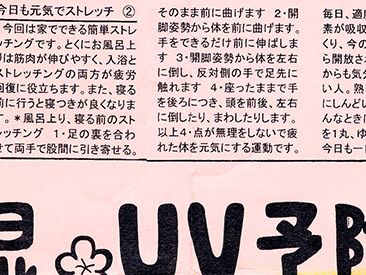 今日も元気でストレッチ ②
今回は家でできる簡単スト
ッチングです。とくにお風呂上
りは筋肉が伸びやすく、入浴と
ストレッチングの両方が疲労
回復に役立ちます。また、寝る
前に行うと寝つきが良くなりま
す。＊風呂上り、寝る前のスト
レッチング 1・足の裏を合わ
せて両手で股間に引き寄せる。
そのまま前に曲げます 2・開
脚姿勢から体を前に曲げます。
手をできるだけ前に伸ばしま
す 3・開脚姿勢から体を左右
に倒し、反対側の手で足先に
触れます 4・座ったままで手
を後ろにつき、頭を前後、左右
に倒したり、まわしたりします。
以上4・点が無理をしないで疲
れた体を元気にする運動です。
毎日、適
素が吸収
く、今の
ら開放さ
からも気
い人。熟
にしんどい
んなときに
を1丸、ゆ
今日も一
UV予防